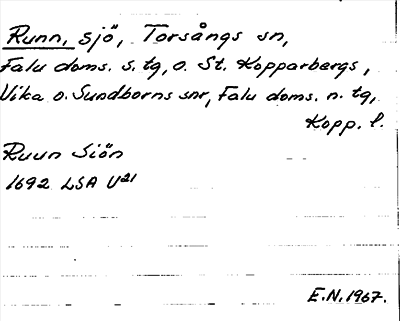 Runn, sjö, Torsångs sn,
Falu doms. s. tg, o. St. Kopparbergs,
Vika o. Sundborns snr, Falu doms. n. tg,
Kopp. l.
Ruun Siön
1692 LSA U21
E.N. 1967.